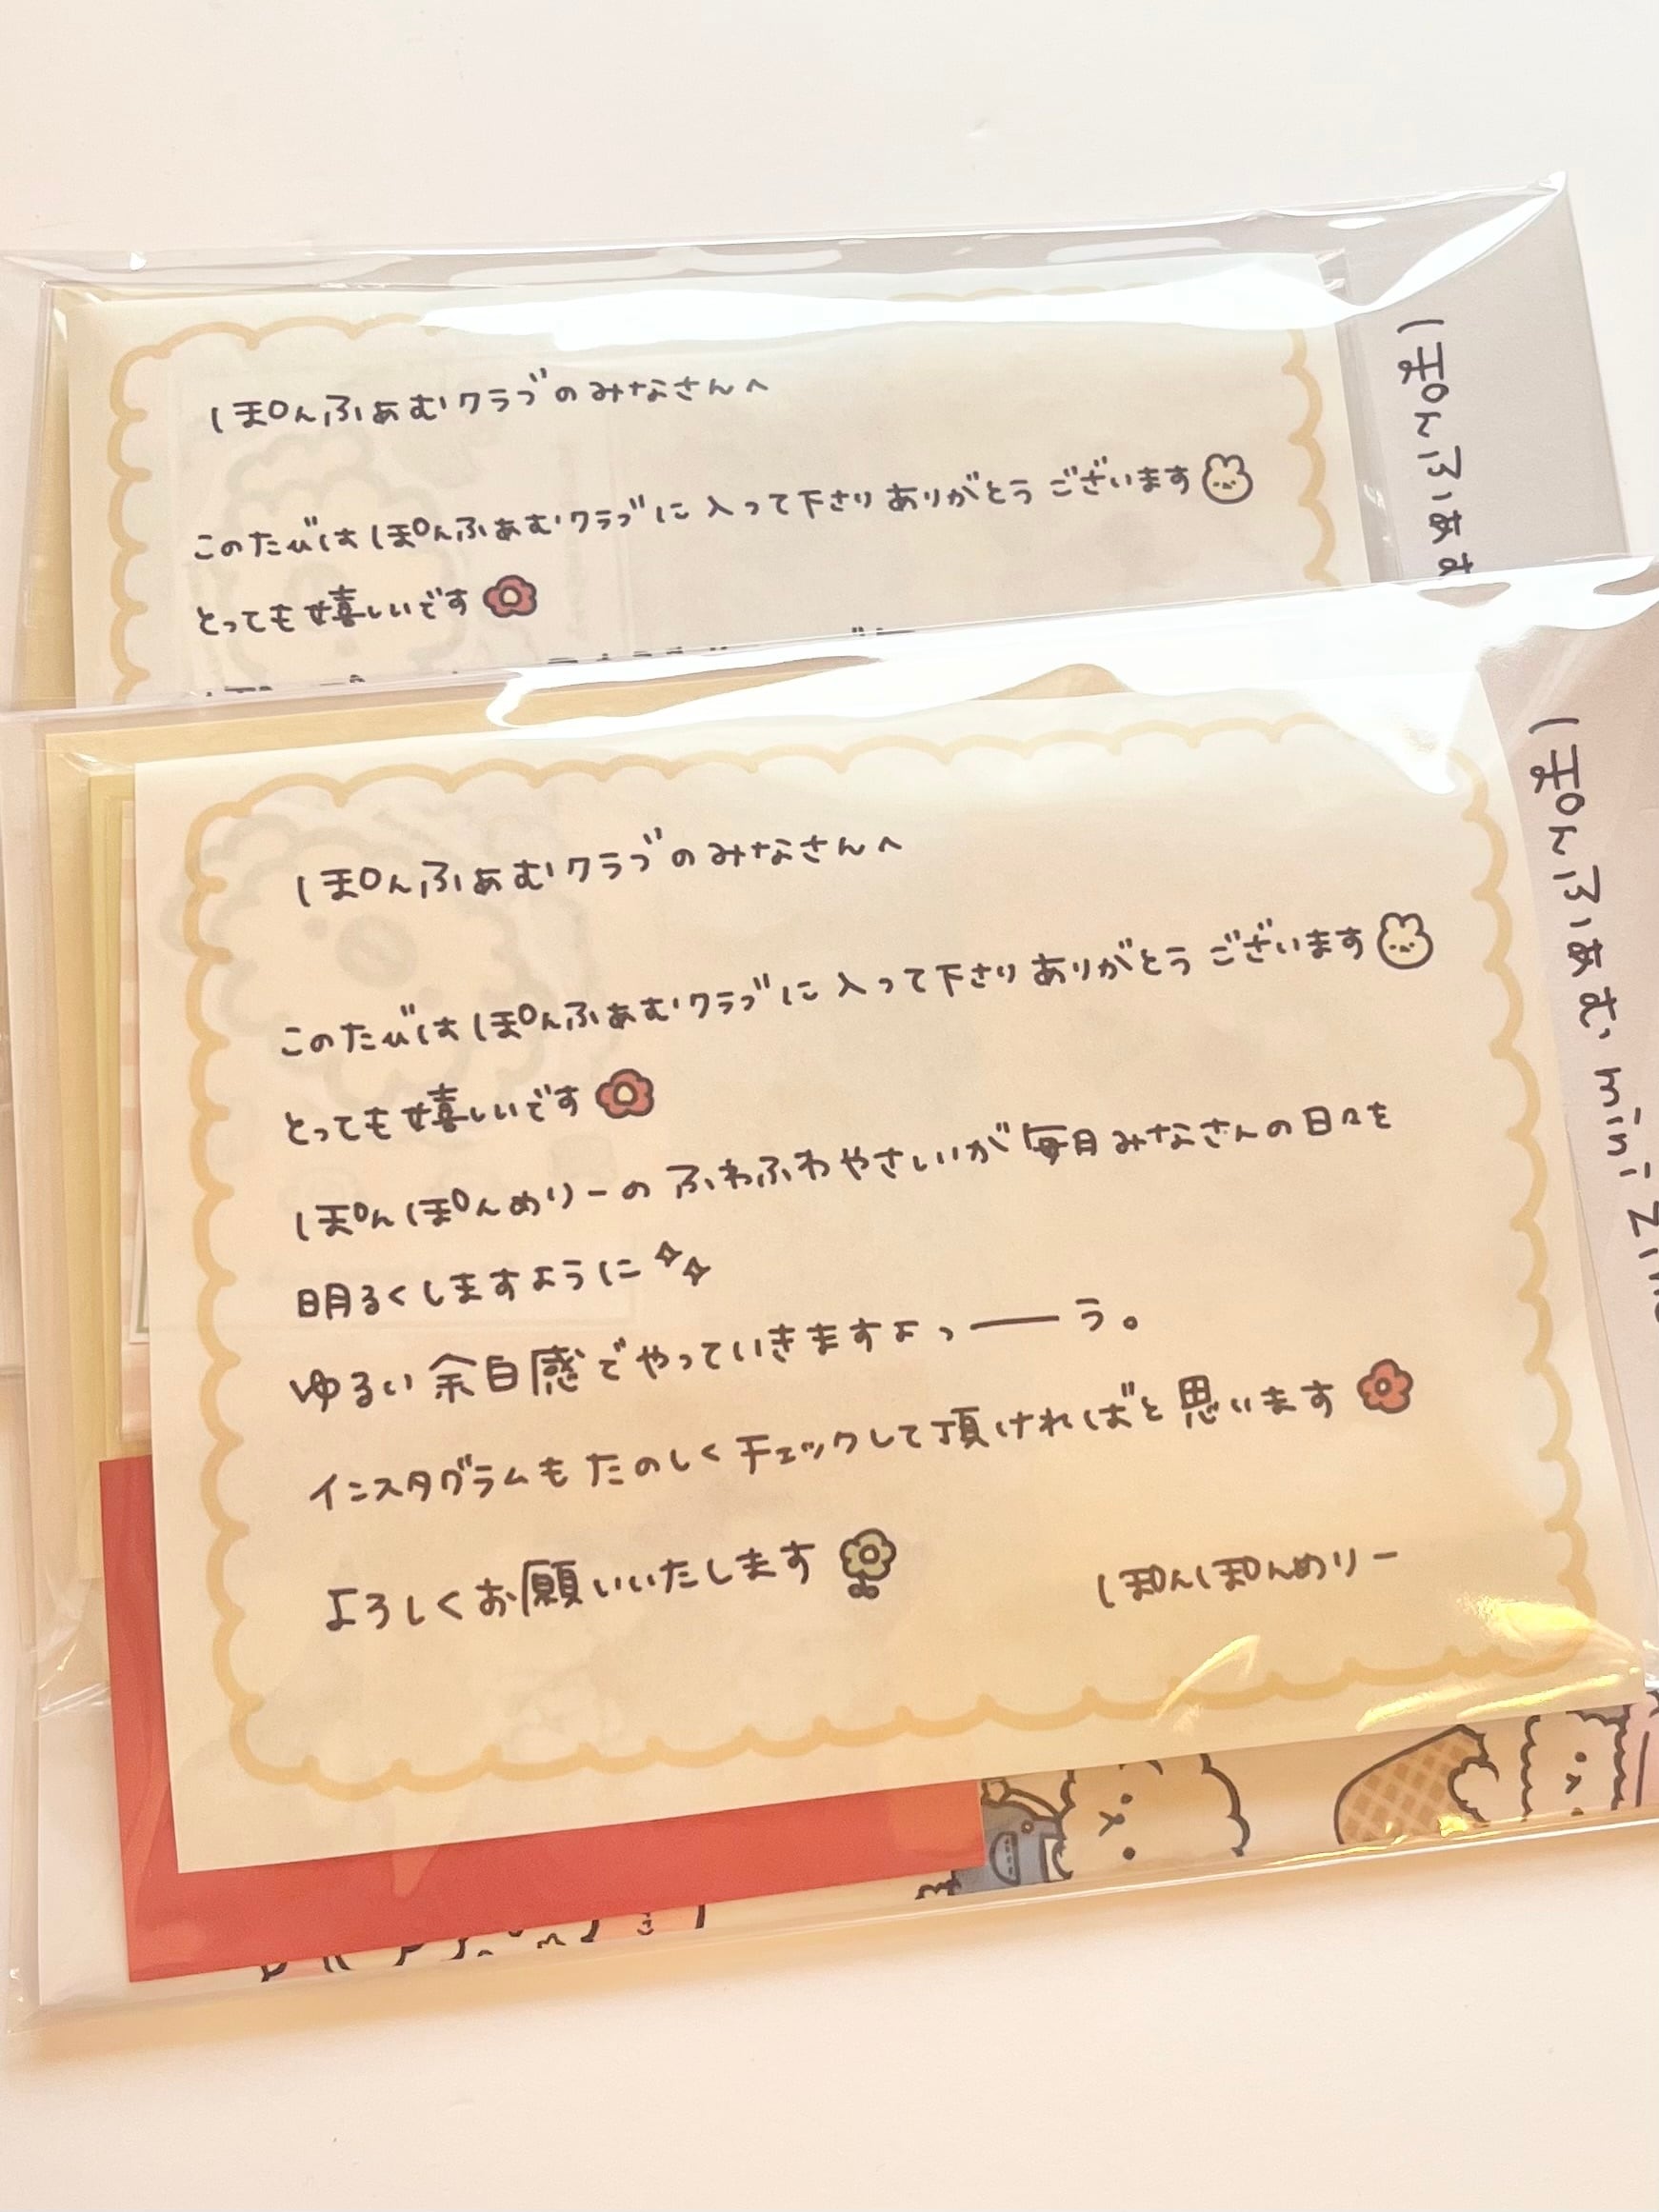 ぽんふぁむクラブのみなさんへ
このたびは ぽんふぁむクラブに 入って下さり ありがとう ございます
とっても嬉しいです
ぽんふぁむ
ぽんふぁむクラブのみなさんへ
このたびは ぽんふぁむクラブに 入って下さり ありがとう ございます
とっても嬉しいです
ぽんぽんめりーの ふわふわやさいいが 毎月 みなさんの日々を
明るくしますように
ゆるい 余白感でやっていきますよっーう。
インスタグラムも たのしく チェックして頂ければと思います
よろしくお願いいたします
ぽんぽんめりー
ぽんふぁむ mini